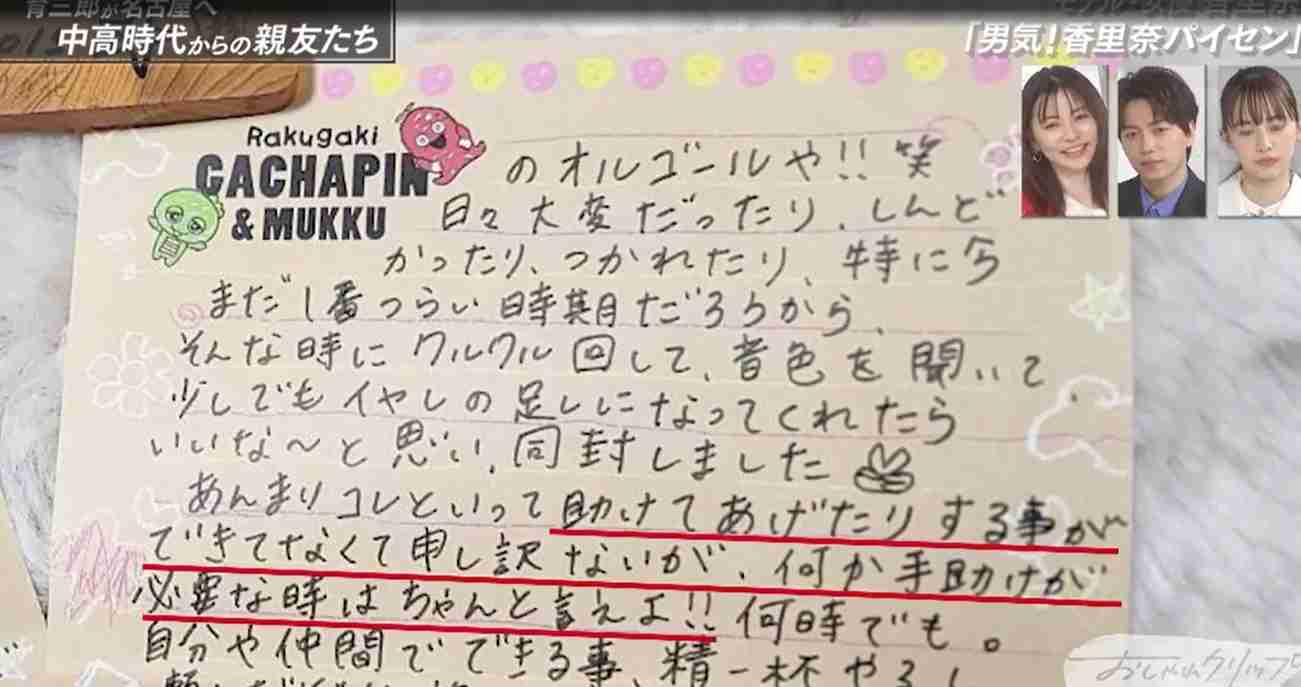 育三郎が名古屋へ
中高時代からの親友たち
「男気!香里奈パイセン」
Rakugaki
GACHAPIN
& MUKKU
のオルゴールや!! 笑
日々大変だったり、しんど
かったり、つかれたり、特に今
まだ1番つらい時期だろうから、
そんな時にクルクル回して、音色を聞いて
少しでもイヤしの足しになってくれたら
いいな〜と思い、同封しました
あんまりコレといって助けてあげたりする事が
できてなくて申し訳ないが、何か手助けが
必要な時はちゃんと言えよ!! 何時でも。
自分や仲間でできる事、精一杯やるし
おしゃれクリップ